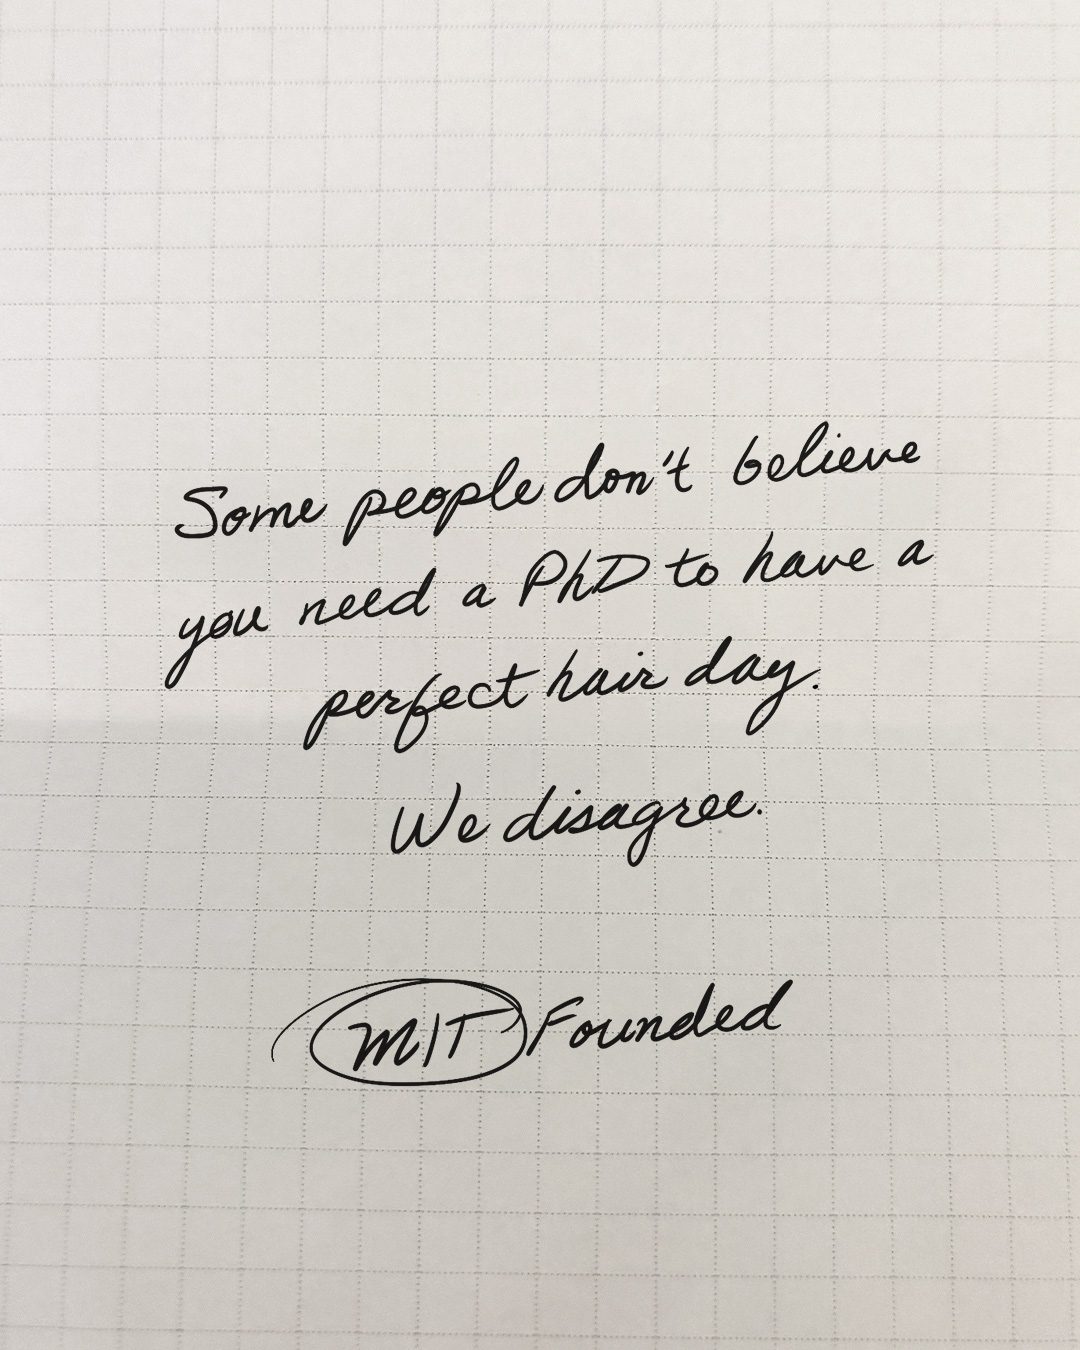 Some people don't believe
you need a PhD to have a
perfect hair day.
We disagree.
MIT Founded